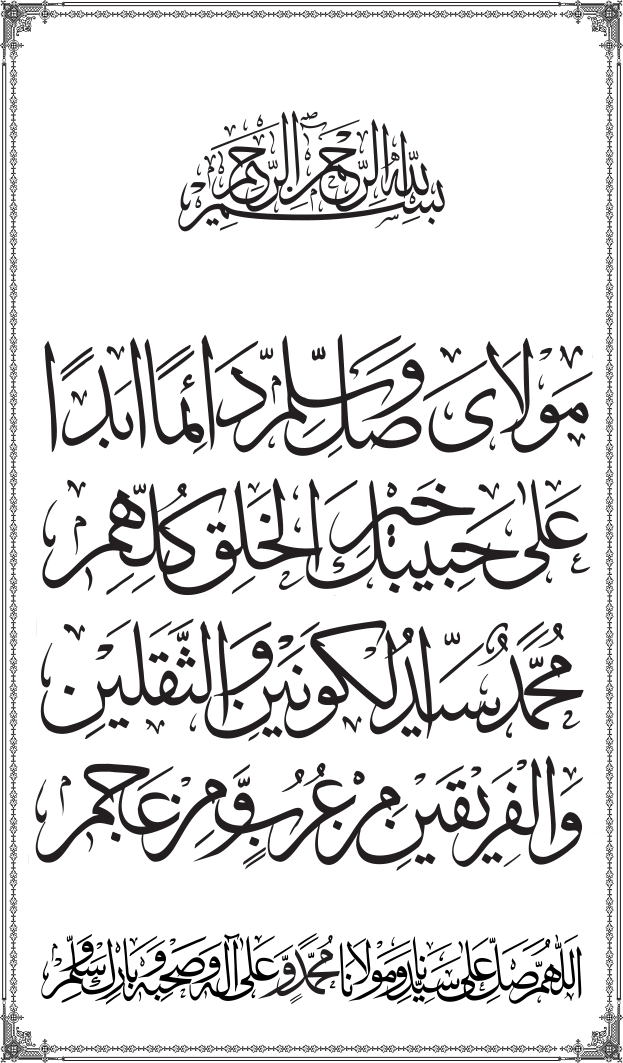 بِسْمِ اللهِ الرَّحْمٰنِ الرَّحِيمِ
مَوْلَايَ صَلِّ وَسَلِّمْ دَائِمًا أَبَدًا
عَلَى حَبِيبِكَ خَيْرِ الْخَلْقِ كُلِّهِمِ
مُحَمَّدٌ سَيِّدُ الْكَوْنَيْنِ وَالثَّقَلَيْنِ
وَالْفَرِيقَيْنِ مِنْ عُرْبٍ وَّمِنْ عَجَمِ
اَللّٰهُمَّ صَلِّ عَلَى سَيِّدِنَا وَمَوْلَانَا مُحَمَّدٍ وَّعَلَى آلِهِ وَصَحْبِهِ وَبَارِكْ وَسَلِّمْ